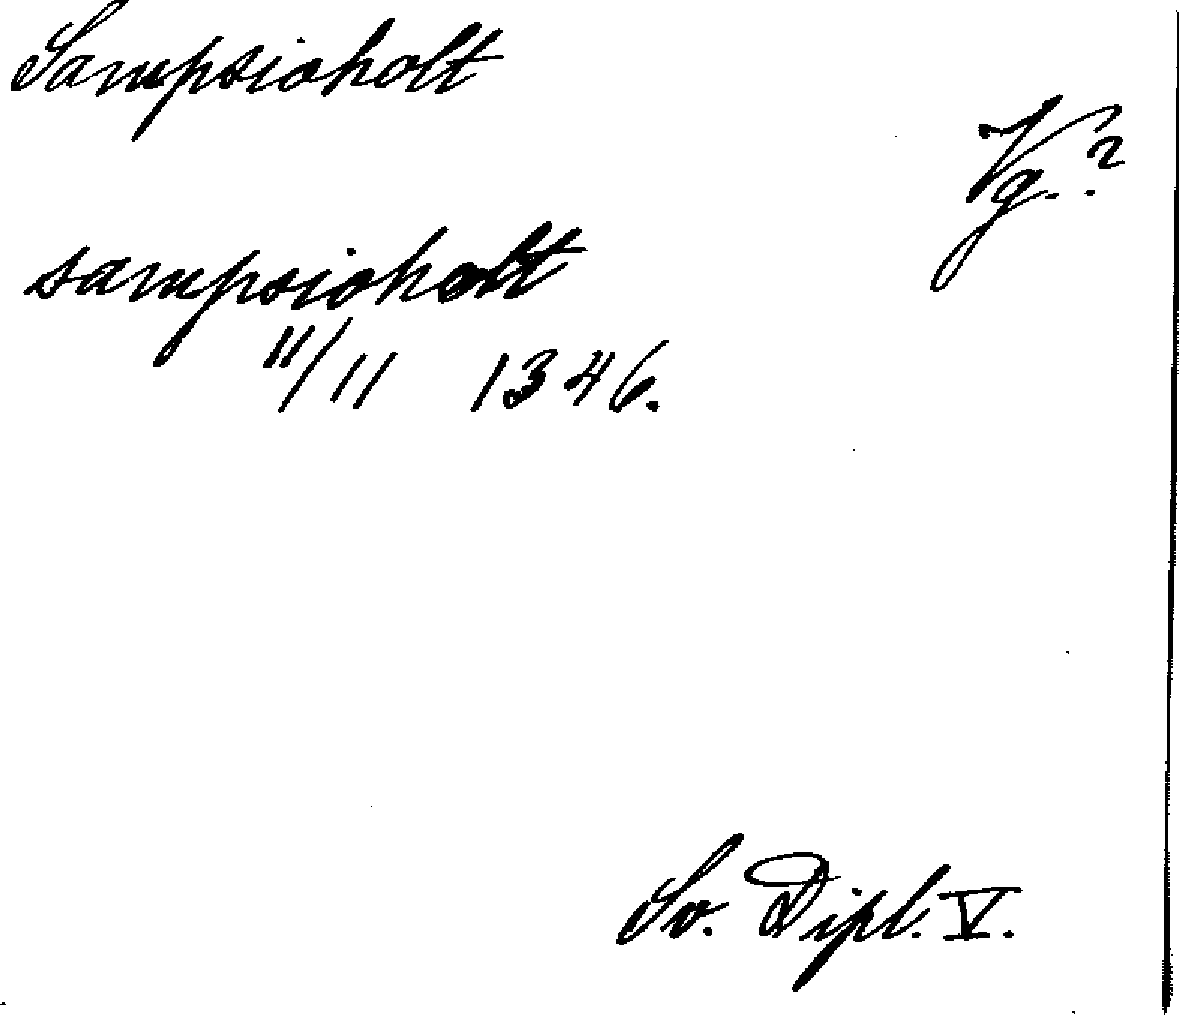 Sampsioholt
Vg. ?
sampsioholt
11/11 1346.
Sv. Dipl. V.